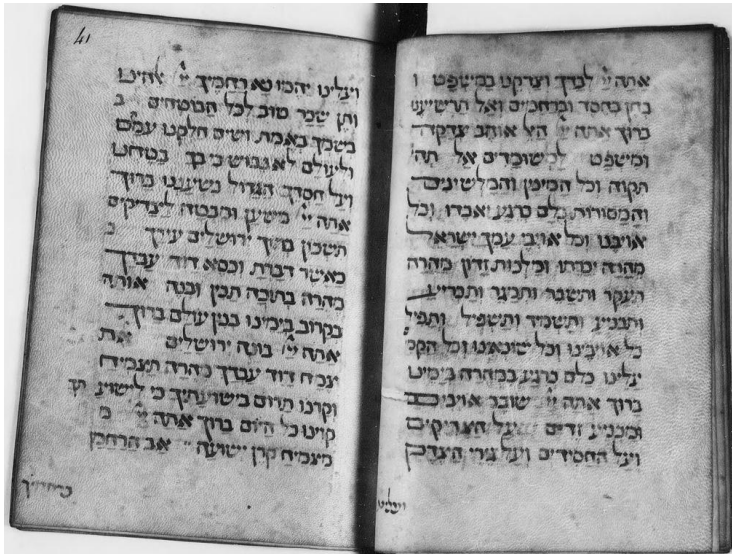 אתה יי לבדך וצדקנו במשפט ו
בחן בחסד וברחמים ואל תרשיענו
ברוך אתה יי המ אוהב צדקה
ומשפט למשומדים אל תהי
תקוה וכל המינין והמלשינים
והמסורות כלם כרגע יאבדו וכל
אויבנו וכל אויבי עמך ישראל
מהרה יכרתו ומלכות זדון מהרה
תעקר ותשבר ותמגר ותכריע
ותכניע ותשמיד ותשפיל ותפיל
כל אויבינו וכל שונאינו וכל הקמי
עלינו כלם כרגע במהרה בימינו
ברוך אתה יי שובר אויבים
ומכניע זדים על הצדיקים
ועל החסידים ועל גירי הצדק
ועלינו
41
ועלינו יהמו נא רחמיך יי אלהינו
ותן שכר טוב לכל הבוטחים ב
בשמך באמת ושים חלקנו עמהם
ולעולם לא נבוש כי בך בטחנו
ועל חסדך הגדול נשעננו ברוך
אתה יי משען ומבטח לצדיקים
תשכון בתוך ירושלים עירך כ
כאשר דברת וכסא דוד עבדך
מהרה בתוכה תכין ובנה אותה
בקרוב בימינו בנין עולם ברוך
אתה יי בונה ירושלים את
צמח דוד עבדך מהרה תצמיח
וקרנו תרום בישועתיך כי לישועתך
קוינו כל היום ברוך אתה יי מ
מצמיח קרן ישועה אב הרחמן